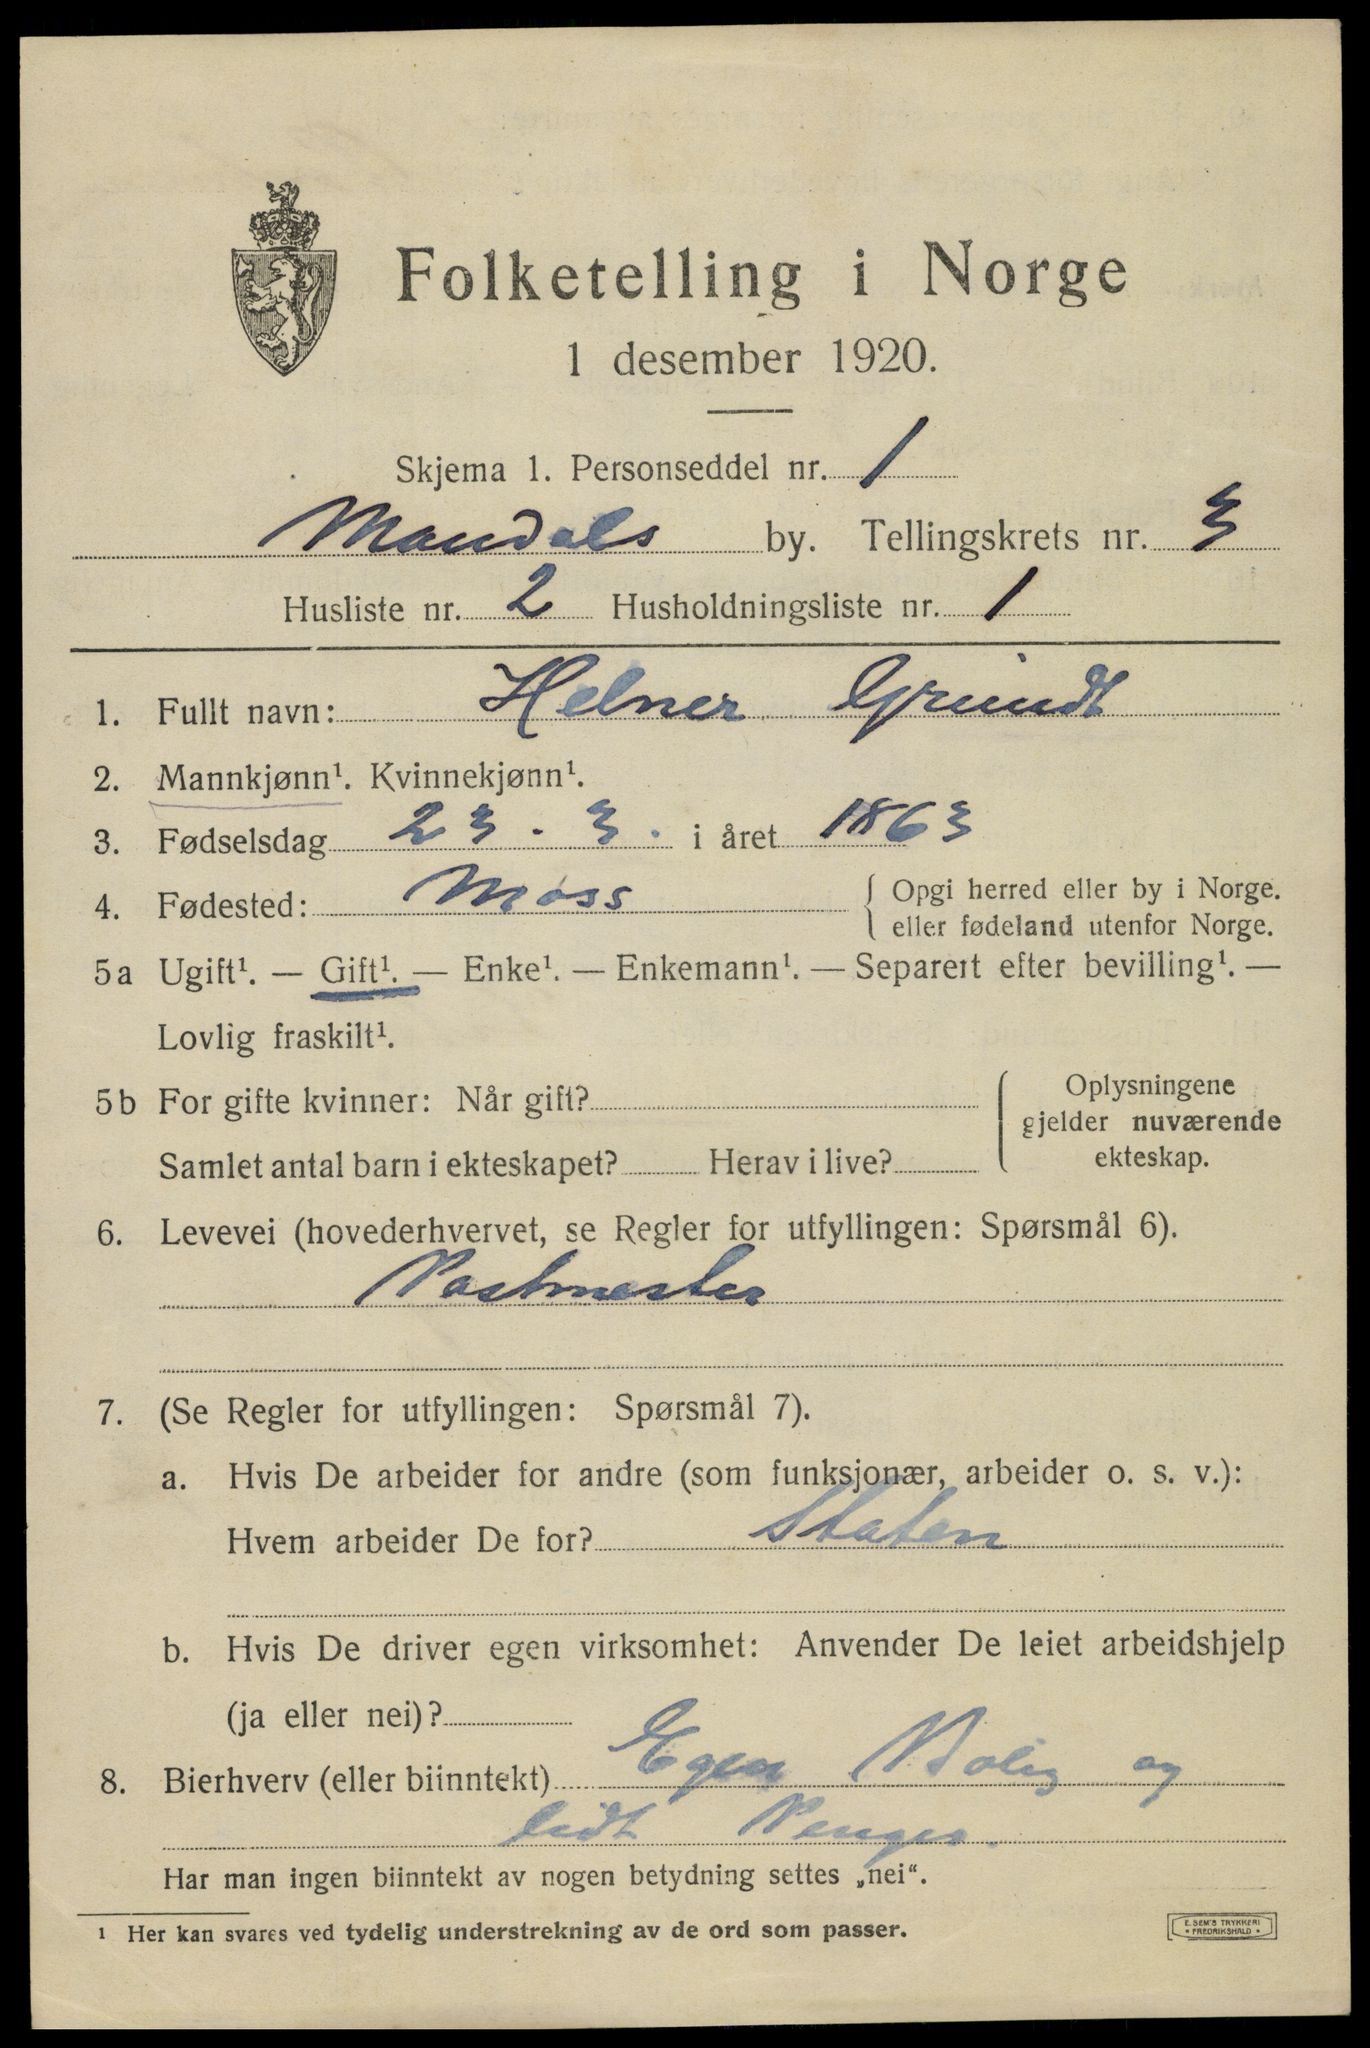 Folketelling i Norge
1 desember 1920.
Skjema 1. Personseddel nr. 1
Mandals by. Tellingskrets nr. 3
Husliste nr. 2 Husholdningsliste nr. 1
1. Fullt navn: Helner Grundt
2. Mannkjønn¹. Kvinnekjønn¹.
3. Fødselsdag 23. 3. i året 1863
4. Fødested: Moss { Opgi herred eller by i Norge.
eller fødeland utenfor Norge.
5a Ugift¹. — Gift¹. — Enke¹. — Enkemann¹. — Separert efter bevilling¹. —
Lovlig fraskilt¹.
5b For gifte kvinner: Når gift?
Samlet antal barn i ekteskapet? Herav i live?
Oplysningene
gjelder nuværende
ekteskap.
6. Levevei (hovederhvervet, se Regler for utfyllingen: Spørsmål 6).
Postmester
7. (Se Regler for utfyllingen: Spørsmål 7).
a. Hvis De arbeider for andre (som funksjonær, arbeider o. s. v.):
Hvem arbeider De for? Staten
b. Hvis De driver egen virksomhet: Anvender De leiet arbeidshjelp
(ja eller nei)?
8. Bierhverv (eller biinntekt) Egen Bolig og
lidt Penger.
Har man ingen biinntekt av nogen betydning settes „nei“.
¹ Her kan svares ved tydelig understrekning av de ord som passer.
E. SEM'S TRYKKERI
• FREDRIKSHALD •